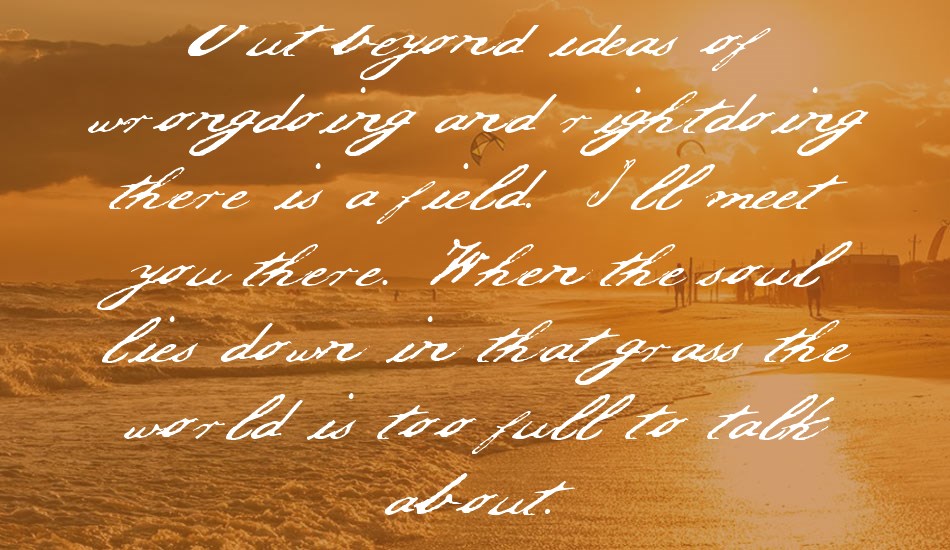 Out beyond ideas of
wrongdoing and rightdoing
there is a field. I'll meet
you there. When the soul
lies down in that grass the
world is too full to talk
about.